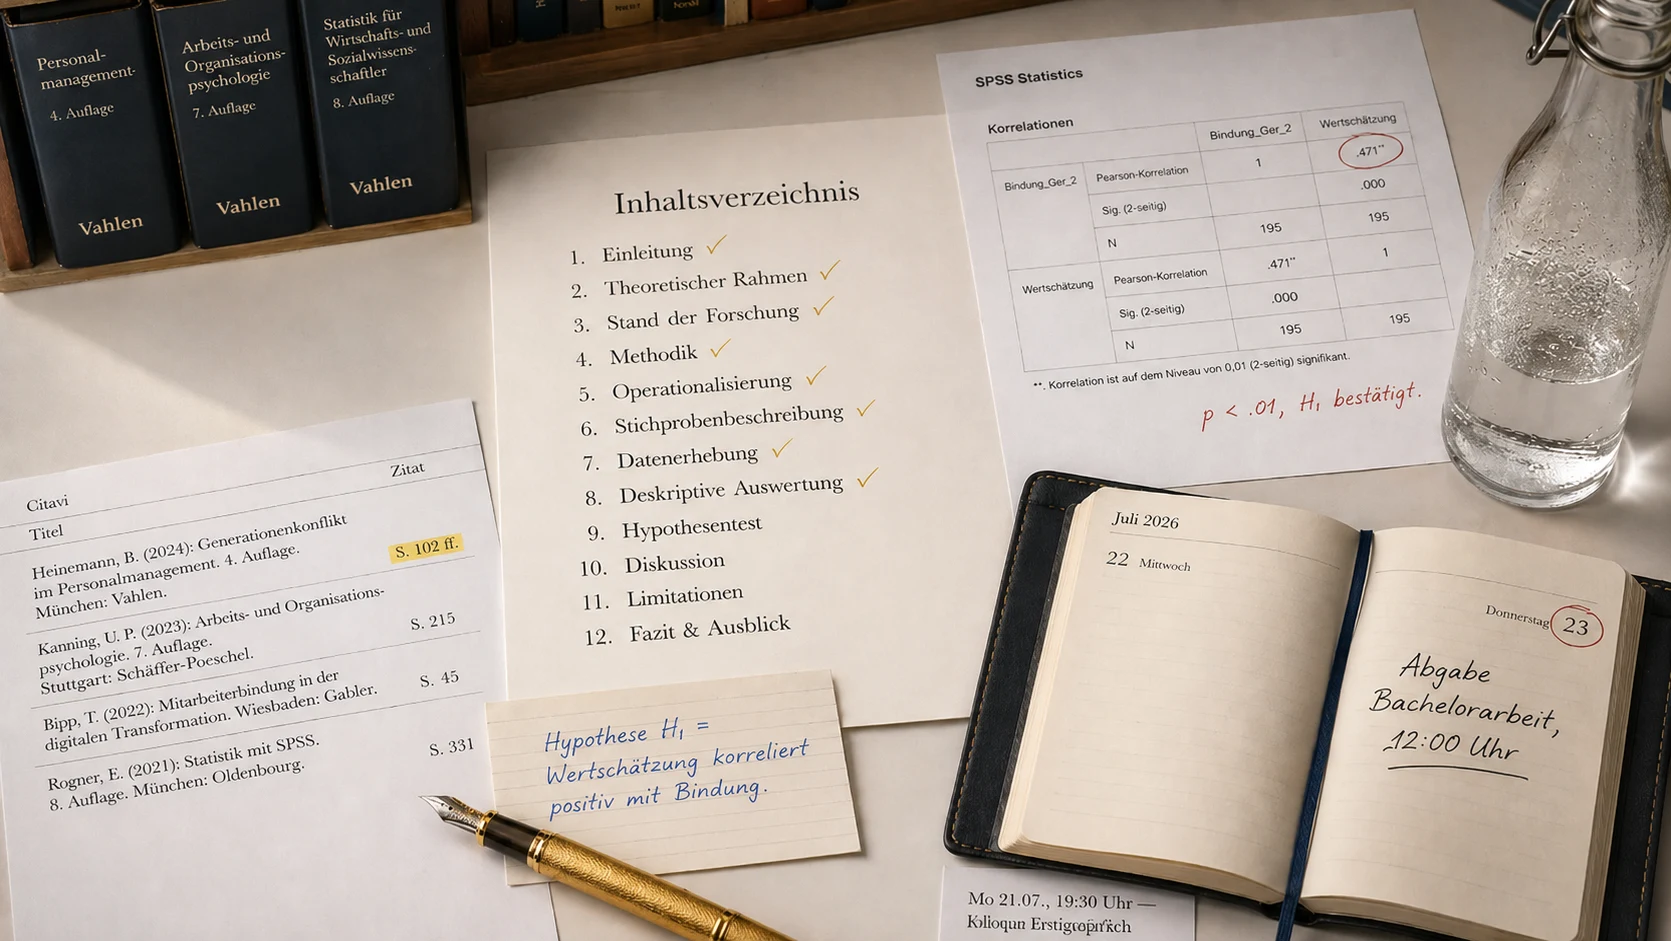 Personal-
management-
4. Auflage
Vahlen
Arbeits- und
Organisations-
psychologie
7. Auflage
Vahlen
Statistik für
Wirtschafts- und
Sozialwissens-
schaftler
8. Auflage
Vahlen
Inhaltsverzeichnis
1. Einleitung ✓
2. Theoretischer Rahmen ✓
3. Stand der Forschung ✓
4. Methodik ✓
5. Operationalisierung ✓
6. Stichprobenbeschreibung ✓
7. Datenerhebung ✓
8. Deskriptive Auswertung ✓
9. Hypothesentest
10. Diskussion
11. Limitationen
12. Fazit & Ausblick
SPSS Statistics
Korrelationen
Bindung_Ger_2 Wertschätzung
Bindung_Ger_2 Pearson-Korrelation 1 .471**
Sig. (2-seitig) .000
N 195 195
Wertschätzung Pearson-Korrelation .471** 1
Sig. (2-seitig) .000
N 195 195
**. Korrelation ist auf dem Niveau von 0,01 (2-seitig) signifikant.
p < .01, H₁ bestätigt.
Citavi Zitat
Titel
Heinemann, B. (2024): Generationenkonflikt
im Personalmanagement. 4. Auflage.
München: Vahlen.
S. 102 ff.
Kanning, U. P. (2023): Arbeits- und Organisations-
psychologie. 7. Auflage.
Stuttgart: Schäffer-Poeschel.
S. 215
Bipp, T. (2022): Mitarbeiterbindung in der
digitalen Transformation. Wiesbaden: Gabler.
S. 45
Rogner, E. (2021): Statistik mit SPSS.
8. Auflage. München: Oldenbourg.
S. 331
Hypothese H₁ =
Wertschätzung korreliert
positiv mit Bindung.
Juli 2026
22 Mittwoch
Donnerstag 23
Abgabe
Bachelorarbeit,
12:00 Uhr
Mo 21.07., 19:30 Uhr —